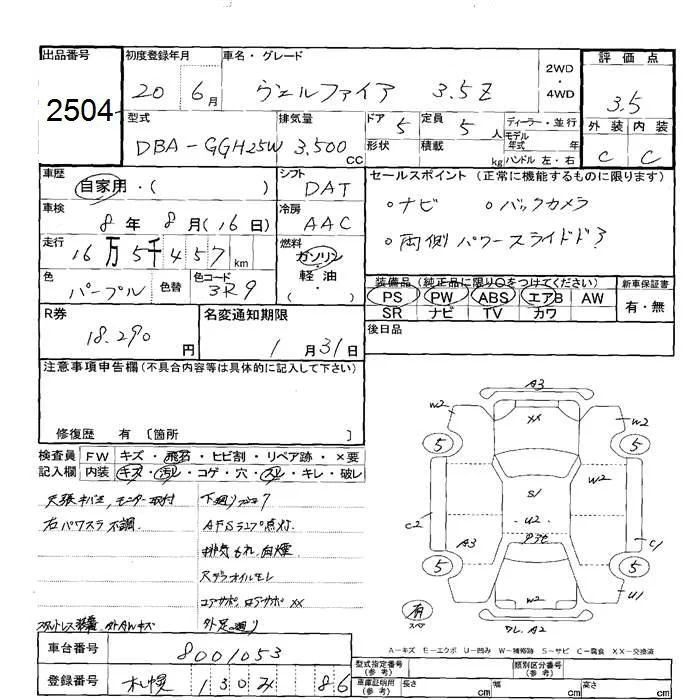 出品番号
2504
初度登録年月
20 6月
車名・グレード
ヴェルファイア 3.5Z
2WD
・
4WD
評価点
3.5
外装 内装
C C
型式
DBA-GGH25W
排気量
3,500 CC
ドア 5
形状
定員 5 人
積載 kg
ディーラー・並行
モデル年式 年式
ハンドル 左・右
車歴
自家用・( )
シフト
DAT
車検
8年 8月(16日)
冷房
AAC
走行
16万5千457 km
燃料
ガソリン
・
軽油
( ・ )
色
パープル
色替
色コード
3R9
セールスポイント (正常に機能するものに限ります)
○ナビ ○バックカメラ
○両側パワースライドドア
装備品(純正品に限り○をつけてください)
PS PW ABS エアB AW
SR ナビ TV カワ
新車保証書
有・無
後日品
R券
18,290円
名変通知期限
1月31日
注意事項申告欄(不具合内容等は具体的に記入して下さい)
修復歴 有 〔箇所 〕
検査員記入欄
FW キズ・飛石・ヒビ割・リペア跡・×要
内装 キズ・汚レ・コゲ・穴・スレ・キレ・破レ
モニター取付 下廻り
右パワスラ不調 AFSランプ点灯
排気もれ 白煙
オイルモレ
コアサポ ロアサポ XX
スタットレス装着 外AWキズ
A3
W2 XX W2
5 5
W2
S1
C2 U2 C1
A3
5 5
W2 U1
有
スペア
A2
A-キズ E-エクボ U-凹み W-補修跡 S-サビ C-腐食 XX-交換済
車台番号
8001053
登録番号
札幌 130 86
型式指定番号(参考)
類別区分番号(参考)
車庫証明用(参考)
長さ cm 幅 cm 高さ cm